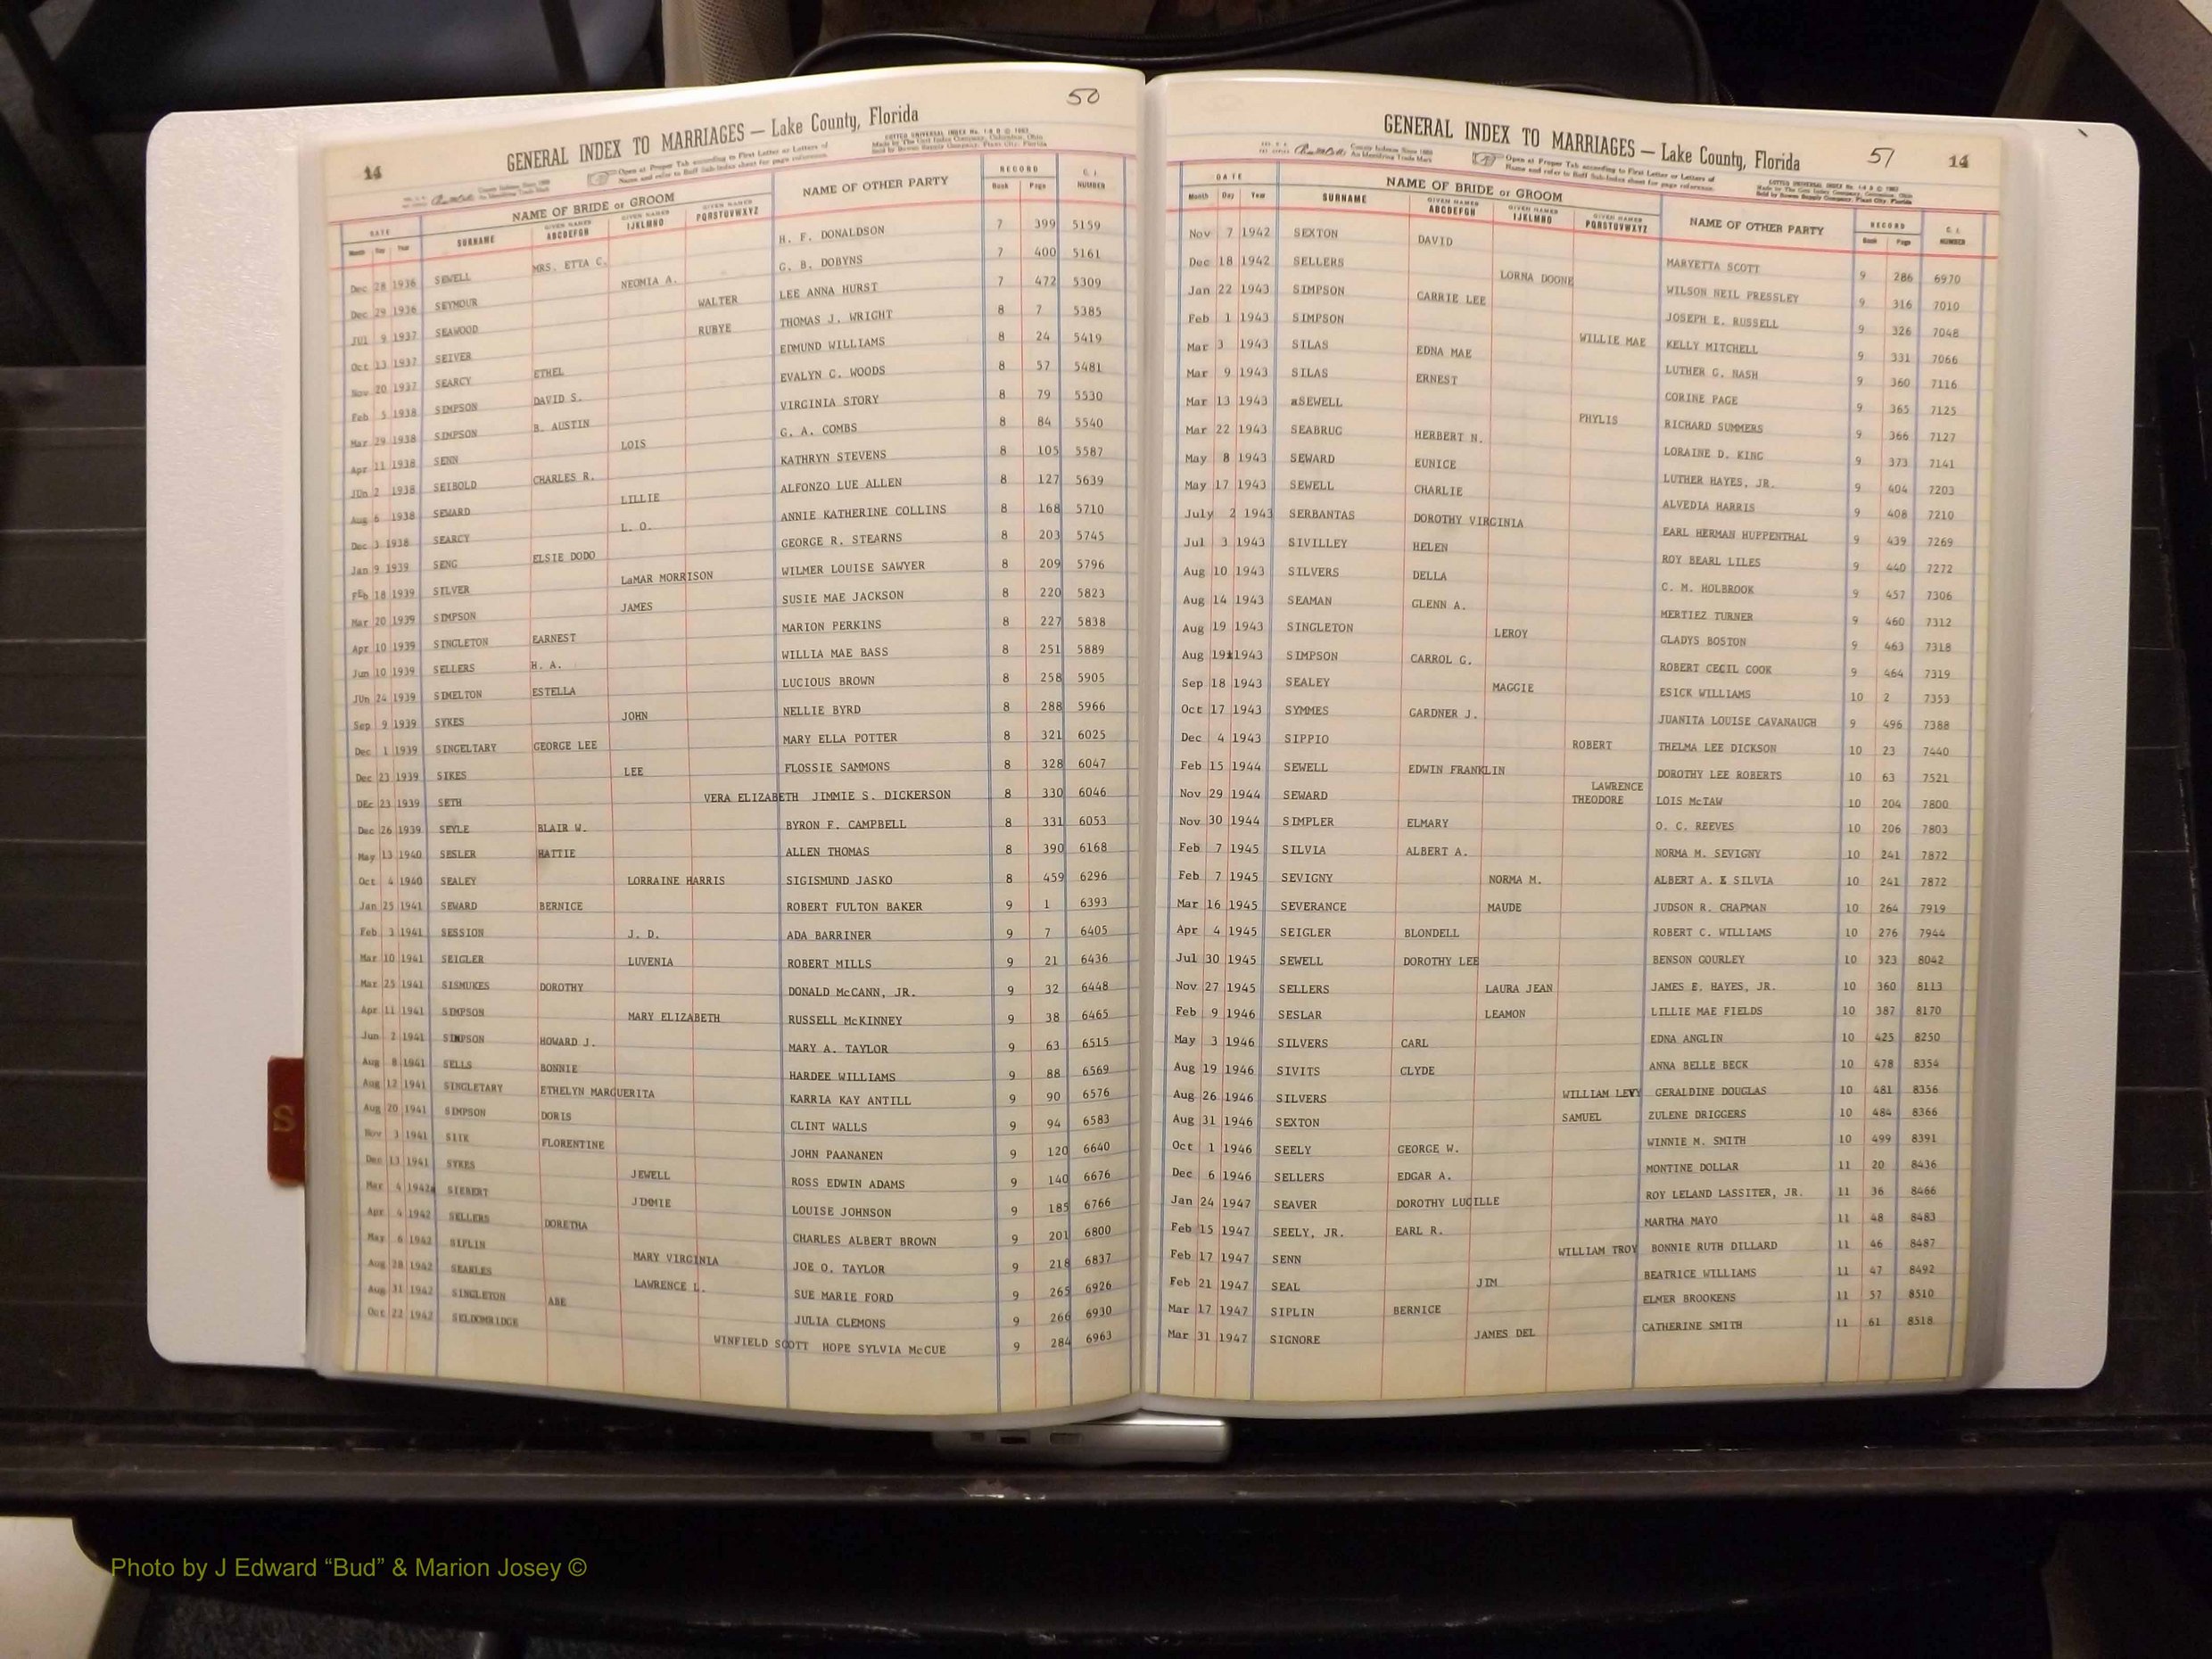 50
14
GENERAL INDEX TO MARRIAGES — Lake County, Florida
Open at Proper Tab according to First Letter or Letters of
Name and refer to Buff Sub-Index sheet for page reference.
COTTED UNIVERSAL INDEX No. 1-8 B © 1963
Made by The Cott Index Company, Columbus, Ohio
Sold by Bowen Supply Company, Plant City, Florida
DATE NAME OF BRIDE or GROOM NAME OF OTHER PARTY RECORD C. I.
Month Day Year SURNAME GIVEN NAMES ABCDEFGH GIVEN NAMES IJKLMNO GIVEN NAMES PQRSTUVWXYZ Book Page NUMBER
Dec 28 1936 SEWELL MRS. ETTA C. H. F. DONALDSON 7 399 5159
Dec 29 1936 SEYMOUR NEOMIA A. G. B. DOBYNS 7 400 5161
JUl 9 1937 SEAWOOD WALTER LEE ANNA HURST 7 472 5309
Oct 13 1937 SEIVER RUBYE THOMAS J. WRIGHT 8 7 5385
Nov 20 1937 SEARCY ETHEL EDMUND WILLIAMS 8 24 5419
Feb 5 1938 SIMPSON DAVID S. EVALYN C. WOODS 8 57 5481
Mar 29 1938 SIMPSON B. AUSTIN VIRGINIA STORY 8 79 5530
Apr 11 1938 SENN LOIS G. A. COMBS 8 84 5540
JUn 2 1938 SEIBOLD CHARLES R. KATHRYN STEVENS 8 105 5587
Aug 6 1938 SEWARD LILLIE ALFONZO LUE ALLEN 8 127 5639
Dec 3 1938 SEARCY L. O. ANNIE KATHERINE COLLINS 8 168 5710
Jan 9 1939 SENG ELSIE DODO GEORGE R. STEARNS 8 203 5745
FEb 18 1939 SILVER LaMAR MORRISON WILMER LOUISE SAWYER 8 209 5796
Mar 20 1939 SIMPSON JAMES SUSIE MAE JACKSON 8 220 5823
Apr 10 1939 SINGLETON EARNEST MARION PERKINS 8 227 5838
Jun 10 1939 SELLERS H. A. WILLIA MAE BASS 8 251 5889
JUn 24 1939 SIMELTON ESTELLA LUCIOUS BROWN 8 258 5905
Sep 9 1939 SYKES JOHN NELLIE BYRD 8 288 5966
Dec 1 1939 SINGELTARY GEORGE LEE MARY ELLA POTTER 8 321 6025
Dec 23 1939 SIKES LEE FLOSSIE SAMMONS 8 328 6047
DEc 23 1939 SETH VERA ELIZABETH JIMMIE S. DICKERSON 8 330 6046
Dec 26 1939 SEYLE BLAIR W. BYRON F. CAMPBELL 8 331 6053
May 13 1940 SESLER HATTIE ALLEN THOMAS 8 390 6168
Oct 4 1940 SEALEY LORRAINE HARRIS SIGISMUND JASKO 8 459 6296
Jan 25 1941 SEWARD BERNICE ROBERT FULTON BAKER 9 1 6393
Feb 3 1941 SESSION J. D. ADA BARRINER 9 7 6405
Mar 10 1941 SEIGLER LUVENIA ROBERT MILLS 9 21 6436
Mar 25 1941 SISMUKES DOROTHY DONALD McCANN, JR. 9 32 6448
Apr 11 1941 SIMPSON MARY ELIZABETH RUSSELL McKINNEY 9 38 6465
Jun 2 1941 SIMPSON HOWARD J. MARY A. TAYLOR 9 63 6515
Aug 8 1941 SELLS BONNIE HARDEE WILLIAMS 9 88 6569
Aug 12 1941 SINGLETARY ETHELYN MARGUERITA KARRIA KAY ANTILL 9 90 6576
Aug 20 1941 SIMPSON DORIS CLINT WALLS 9 94 6583
Nov 3 1941 SIIK FLORENTINE JOHN PAANANEN 9 120 6640
Dec 13 1941 SYKES JEWELL ROSS EDWIN ADAMS 9 140 6676
Mar 4 1942 SIEBERT JIMMIE LOUISE JOHNSON 9 185 6766
Apr 4 1942 SELLERS DORETHA CHARLES ALBERT BROWN 9 201 6800
May 6 1942 SIPLIN MARY VIRGINIA JOE O. TAYLOR 9 218 6837
Aug 28 1942 SEARLES LAWRENCE L. SUE MARIE FORD 9 265 6926
Aug 31 1942 SINGLETON ABE JULIA CLEMONS 9 266 6930
Oct 22 1942 SELDOMRIDGE WINFIELD SCOTT HOPE SYLVIA McCUE 9 284 6963
S
GENERAL INDEX TO MARRIAGES — Lake County, Florida
51 14
Open at Proper Tab according to First Letter or Letters of
Name and refer to Buff Sub-Index sheet for page reference.
COTTED UNIVERSAL INDEX No. 1-8 B © 1963
Made by The Cott Index Company, Columbus, Ohio
Sold by Bowen Supply Company, Plant City, Florida
DATE NAME OF BRIDE or GROOM NAME OF OTHER PARTY RECORD C. I.
Month Day Year SURNAME GIVEN NAMES ABCDEFGH GIVEN NAMES IJKLMNO GIVEN NAMES PQRSTUVWXYZ Book Page NUMBER
Nov 7 1942 SEXTON DAVID MARYETTA SCOTT 9 286 6970
Dec 18 1942 SELLERS LORNA DOONE WILSON NEIL PRESSLEY 9 316 7010
Jan 22 1943 SIMPSON CARRIE LEE JOSEPH E. RUSSELL 9 326 7048
Feb 1 1943 SIMPSON WILLIE MAE KELLY MITCHELL 9 331 7066
Mar 3 1943 SILAS EDNA MAE LUTHER G. NASH 9 360 7116
Mar 9 1943 SILAS ERNEST CORINE PAGE 9 365 7125
Mar 13 1943 SEWELL PHYLIS RICHARD SUMMERS 9 366 7127
Mar 22 1943 SEABRUG HERBERT N. LORAINE D. KING 9 373 7141
May 8 1943 SEWARD EUNICE LUTHER HAYES, JR. 9 404 7203
May 17 1943 SEWELL CHARLIE ALVEDIA HARRIS 9 408 7210
July 2 1943 SERBANTAS DOROTHY VIRGINIA EARL HERMAN HUPPENTHAL 9 439 7269
Jul 3 1943 SIVILLEY HELEN ROY BEARL LILES 9 440 7272
Aug 10 1943 SILVERS DELLA C. M. HOLBROOK 9 457 7306
Aug 14 1943 SEAMAN GLENN A. MERTIEZ TURNER 9 460 7312
Aug 19 1943 SINGLETON LEROY GLADYS BOSTON 9 463 7318
Aug 19 1943 SIMPSON CARROL G. ROBERT CECIL COOK 9 464 7319
Sep 18 1943 SEALEY MAGGIE ESICK WILLIAMS 10 2 7353
Oct 17 1943 SYMMES GARDNER J. JUANITA LOUISE CAVANAUGH 9 496 7388
Dec 4 1943 SIPPIO ROBERT THELMA LEE DICKSON 10 23 7440
Feb 15 1944 SEWELL EDWIN FRANKLIN DOROTHY LEE ROBERTS 10 63 7521
Nov 29 1944 SEWARD LAWRENCE THEODORE LOIS McTAW 10 204 7800
Nov 30 1944 SIMPLER ELMARY O. C. REEVES 10 206 7803
Feb 7 1945 SILVIA ALBERT A. NORMA M. SEVIGNY 10 241 7872
Feb 7 1945 SEVIGNY NORMA M. ALBERT A. X SILVIA 10 241 7872
Mar 16 1945 SEVERANCE MAUDE JUDSON R. CHAPMAN 10 264 7919
Apr 4 1945 SEIGLER BLONDELL ROBERT C. WILLIAMS 10 276 7944
Jul 30 1945 SEWELL DOROTHY LEE BENSON GOURLEY 10 323 8042
Nov 27 1945 SELLERS LAURA JEAN JAMES E. HAYES, JR. 10 360 8113
Feb 9 1946 SESLAR LEAMON LILLIE MAE FIELDS 10 387 8170
May 3 1946 SILVERS CARL EDNA ANGLIN 10 425 8250
Aug 19 1946 SIVITS CLYDE ANNA BELLE BECK 10 478 8354
Aug 26 1946 SILVERS WILLIAM LEVY GERALDINE DOUGLAS 10 481 8356
Aug 31 1946 SEXTON SAMUEL ZULENE DRIGGERS 10 484 8366
Oct 1 1946 SEELY GEORGE W. WINNIE M. SMITH 10 499 8391
Dec 6 1946 SELLERS EDGAR A. MONTINE DOLLAR 11 20 8436
Jan 24 1947 SEAVER DOROTHY LUCILLE ROY LELAND LASSITER, JR. 11 36 8466
Feb 15 1947 SEELY, JR. EARL R. MARTHA MAYO 11 48 8483
Feb 17 1947 SENN WILLIAM TROY BONNIE RUTH DILLARD 11 46 8487
Feb 21 1947 SEAL JIM BEATRICE WILLIAMS 11 47 8492
Mar 17 1947 SIPLIN BERNICE ELMER BROOKENS 11 57 8510
Mar 31 1947 SIGNORE JAMES DEL CATHERINE SMITH 11 61 8518
Photo by J Edward “Bud” & Marion Josey ©